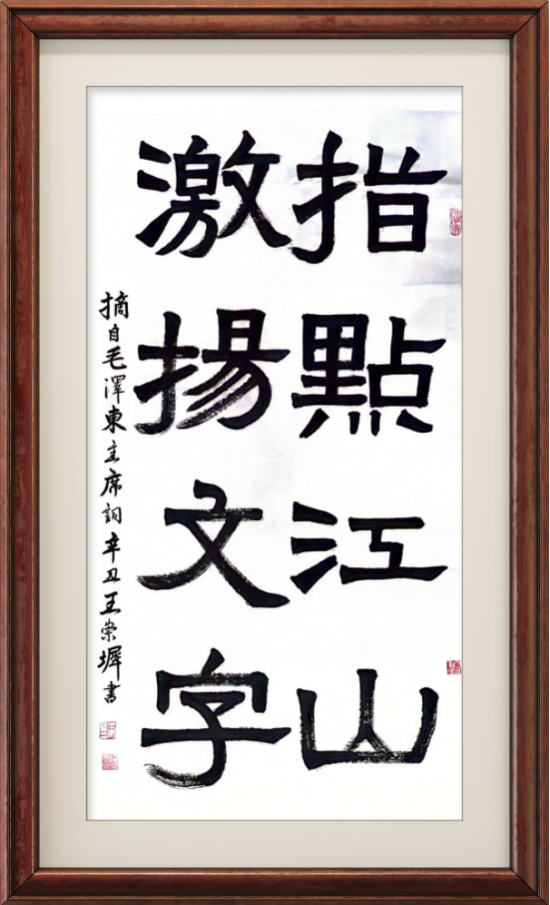 指點江山
激揚文字
摘自毛澤東主席詞辛丑王崇墀書